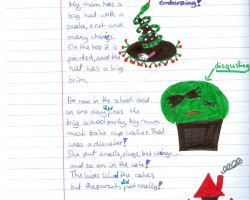 My mam has a
big hat with a
snake, a nut and
many things.
On the top it is
pointed, and the
hat has a big
brim.
Embarassing!
disgusting
I'm now in the school and
on one day was the
big school party. My mum
must bake cup cakes. That
was a disaster!
She put snails, slugs, bat wings
and so on in the cake!
The kids liked the cakes
but the parents not really!